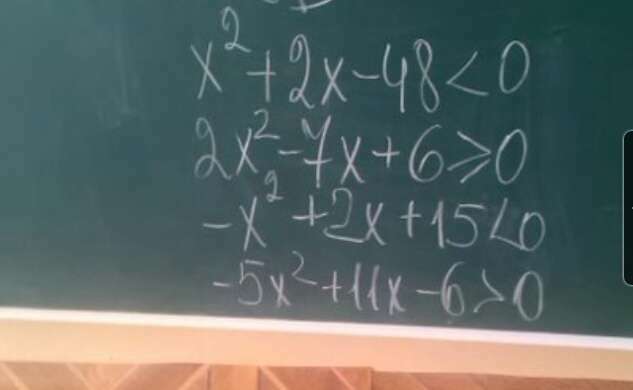 x² + 2x - 48 < 0
2x² - 7x + 6 > 0
-x² + 2x + 15 < 0
-5x² + 11x - 6 > 0